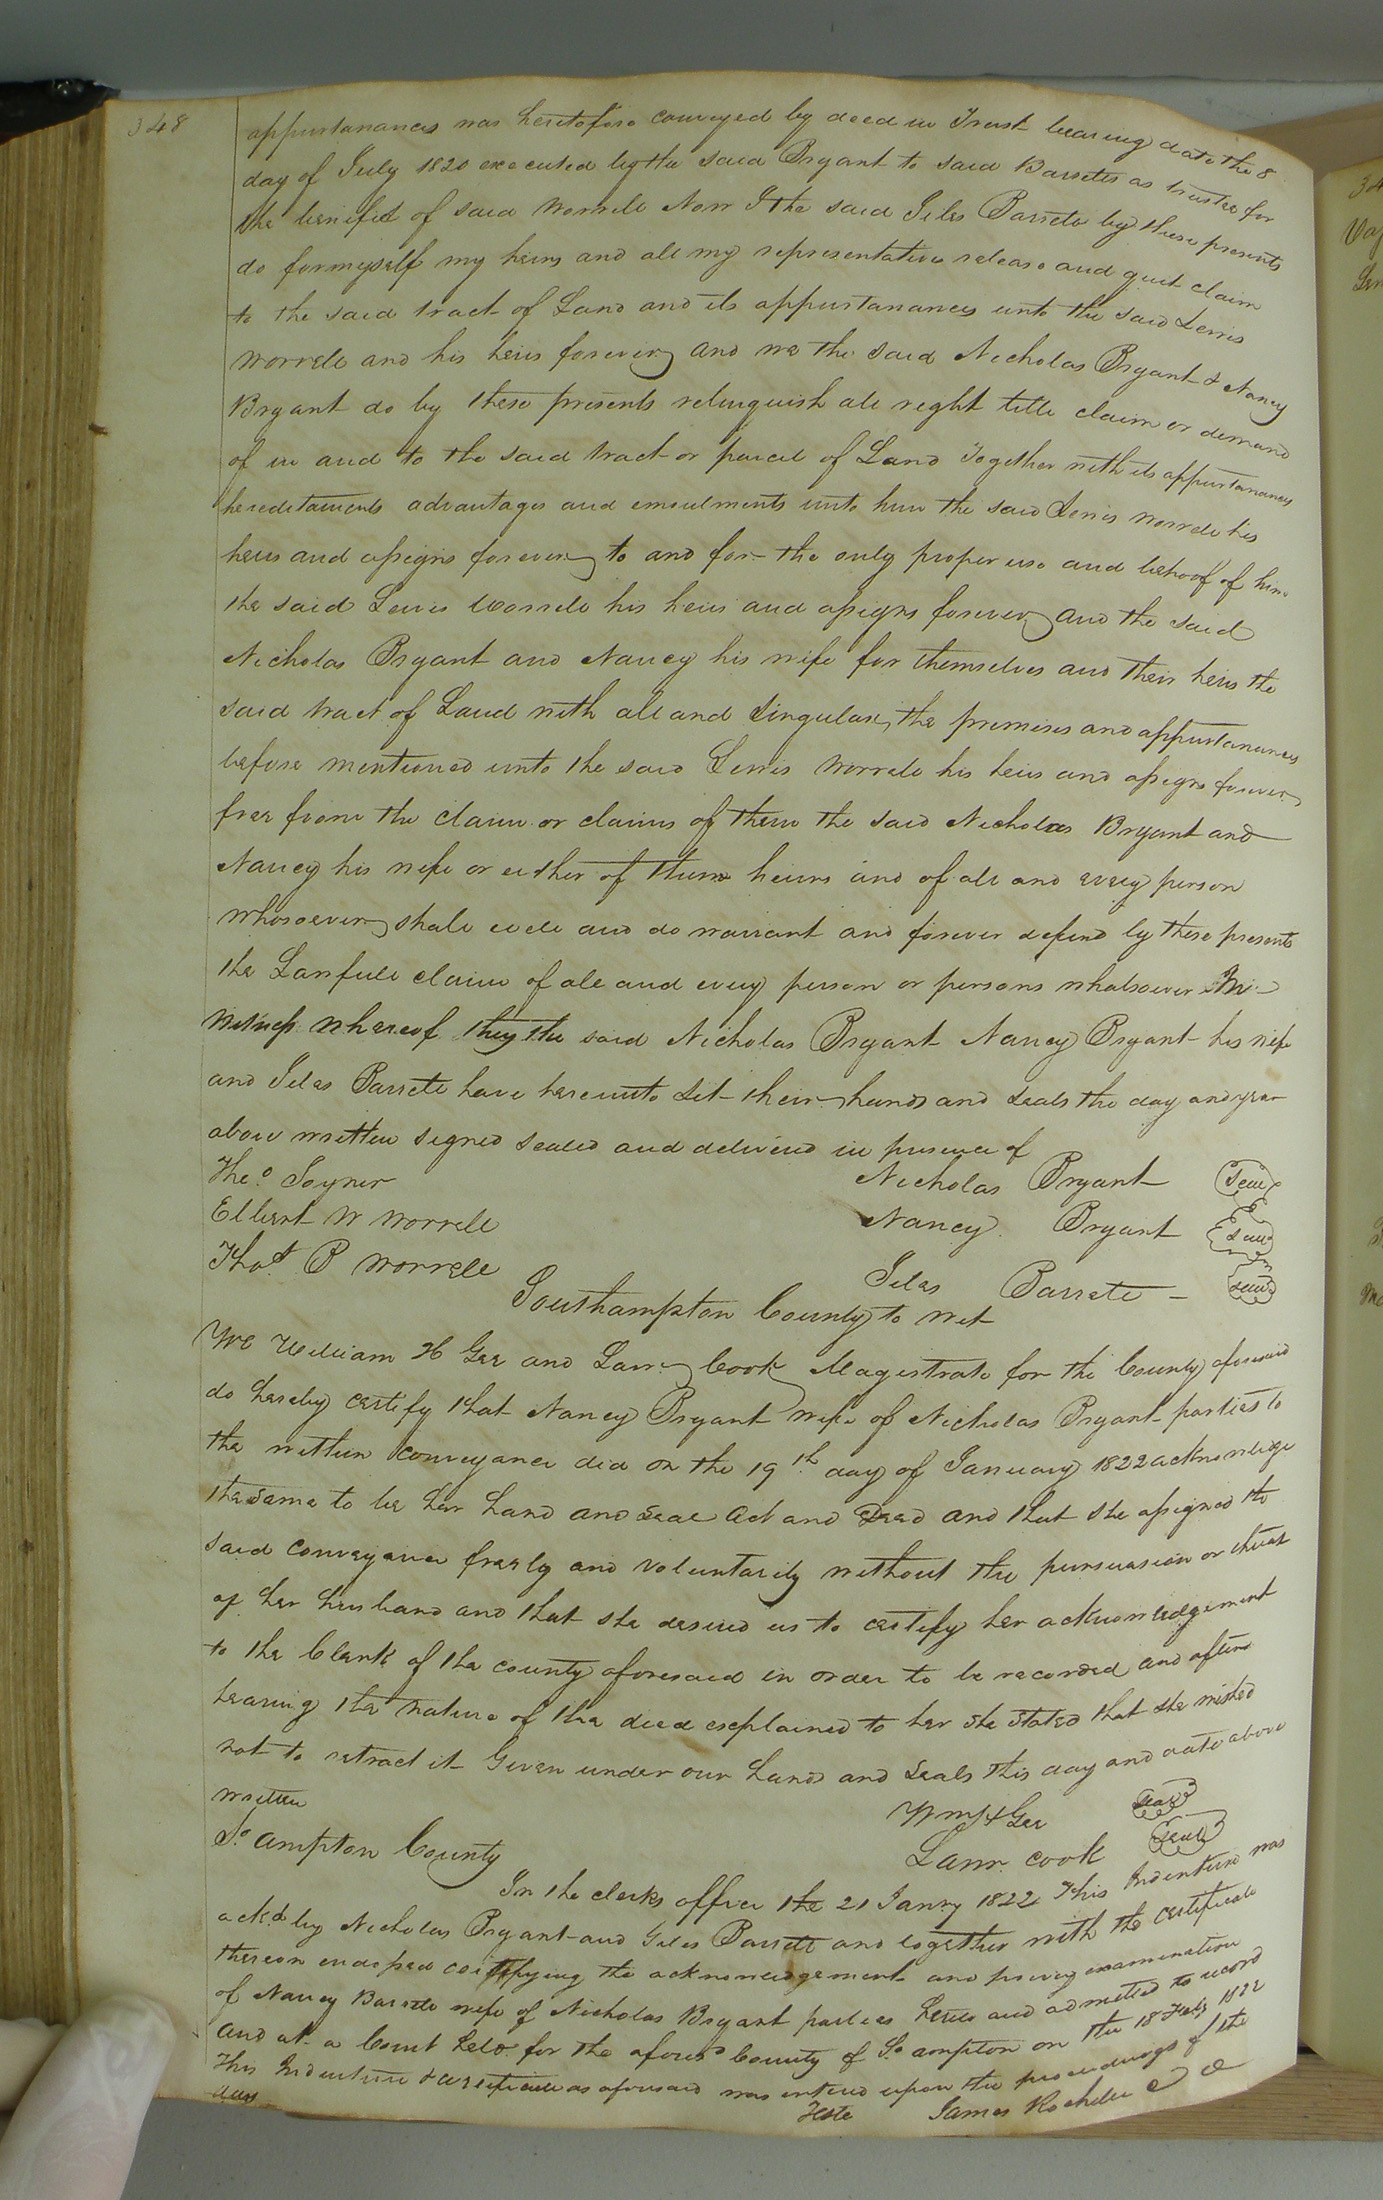 348
appurtanances was heretofore conveyed by deed in Trust bearing date the 8
day of July 1820 executed by the said Bryant to said Barrette as trustee for
the benifit of said Worrele Now I the said Giles Barrete by these presents
do formyself my heirs and all my representatives release and quit claim
to the said tract of Land and its appurtanances unto the said Lewis
Worrele and his heirs forever and we the said Nicholas Bryant & Nancy
Bryant do by these presents relinquish all right title claim or demand
of in and to the said tract or parcel of Land Together with its appurtanances
hereditaments advantages and emoulments unto him the said Lewis Worrele his
heirs and assigns forever to and for the only proper use and behoof of him
the said Lewis Worrele his heirs and assigns forever and the said
Nicholas Bryant and Nancy his wife for themselves and their heirs the
said tract of Land with all and singular, the premises and appurtanances
before mentioned unto the said Lewis Worrele his heirs and assigns forever
free from the claim or claims of them the said Nicholas Bryant and
Nancy his wife or either of them heirs and of all and every person
whosoever shall will and do warrant and forever defend by these presents
the Lawfull claim of all and every person or persons whatsoever In
witness whereof they the said Nicholas Bryant Nancy Bryant his wife
and Giles Barrete have hereunto set their hands and seals the day and year
above written signed sealed and delivered in presence of
Tho.s Joyner Nicholas Bryant Seal
Elbert W Worrell Nancy Bryant Seal
Thos P Worrele Giles Barrete Seal
Southampton County to wit
We William H Gee and Lawr Cook Magistrate for the County aforesaid
do hereby certify that Nancy Bryant wife of Nicholas Bryant parties to
the within conveyance did on the 19th day of January 1822 acknowledge
the same to be her hand and seal act and Deed and that she assigned the
said conveyance freely and voluntarily without the pursuasion or threat
of her husband and that she desired us to certify her acknowledgement
to the Clerk of the county aforesaid in order to be recorded and after
hearing the nature of the deed explained to her she stated that she wished
not to retract it Given under our hands and seals this day and date above
written Wm H Gee Seal
So ampton County Lawr. Cook Seal
In the clerks office the 21 Janry 1822 This Indenture was
ackd by Nicholas Bryant and Giles Barrett and together with the certificate
thereon endorsed certifying the acknowledgement and privy examination
of Nancy Barrete wife of Nicholas Bryant parties hereto and admitted to record
And at a Court held for the afores.d County of So ampton on the 18 Feby 1822
This Indenture & certificate as aforesaid was entered upon the proceedings of the
day
Teste James Rochelle C C